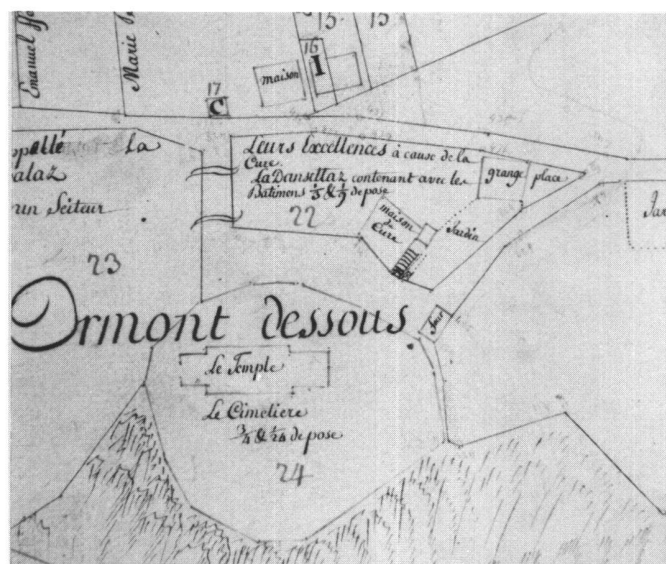 15
15
16
I
maison
Emanuel
Marie
17
C
appellé La
alaz
un Seiteur
23
Leurs Excellences à cause de la
Cure
La Dansettaz contenant avec les
Batimens ⅓ & 1/9 de pose
22
grange
place
maison
de
Cure
Jardin
Jar
Ormont dessous
four
Le Temple
Le Cimetiere
¾ & 1/24 de pose
24